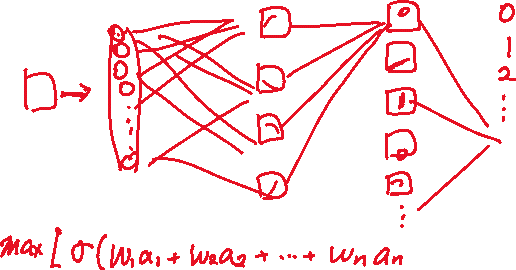 0
1
2
⋮
max [ σ(w₁a₁ + w₂a₂ + ... + wₙaₙ